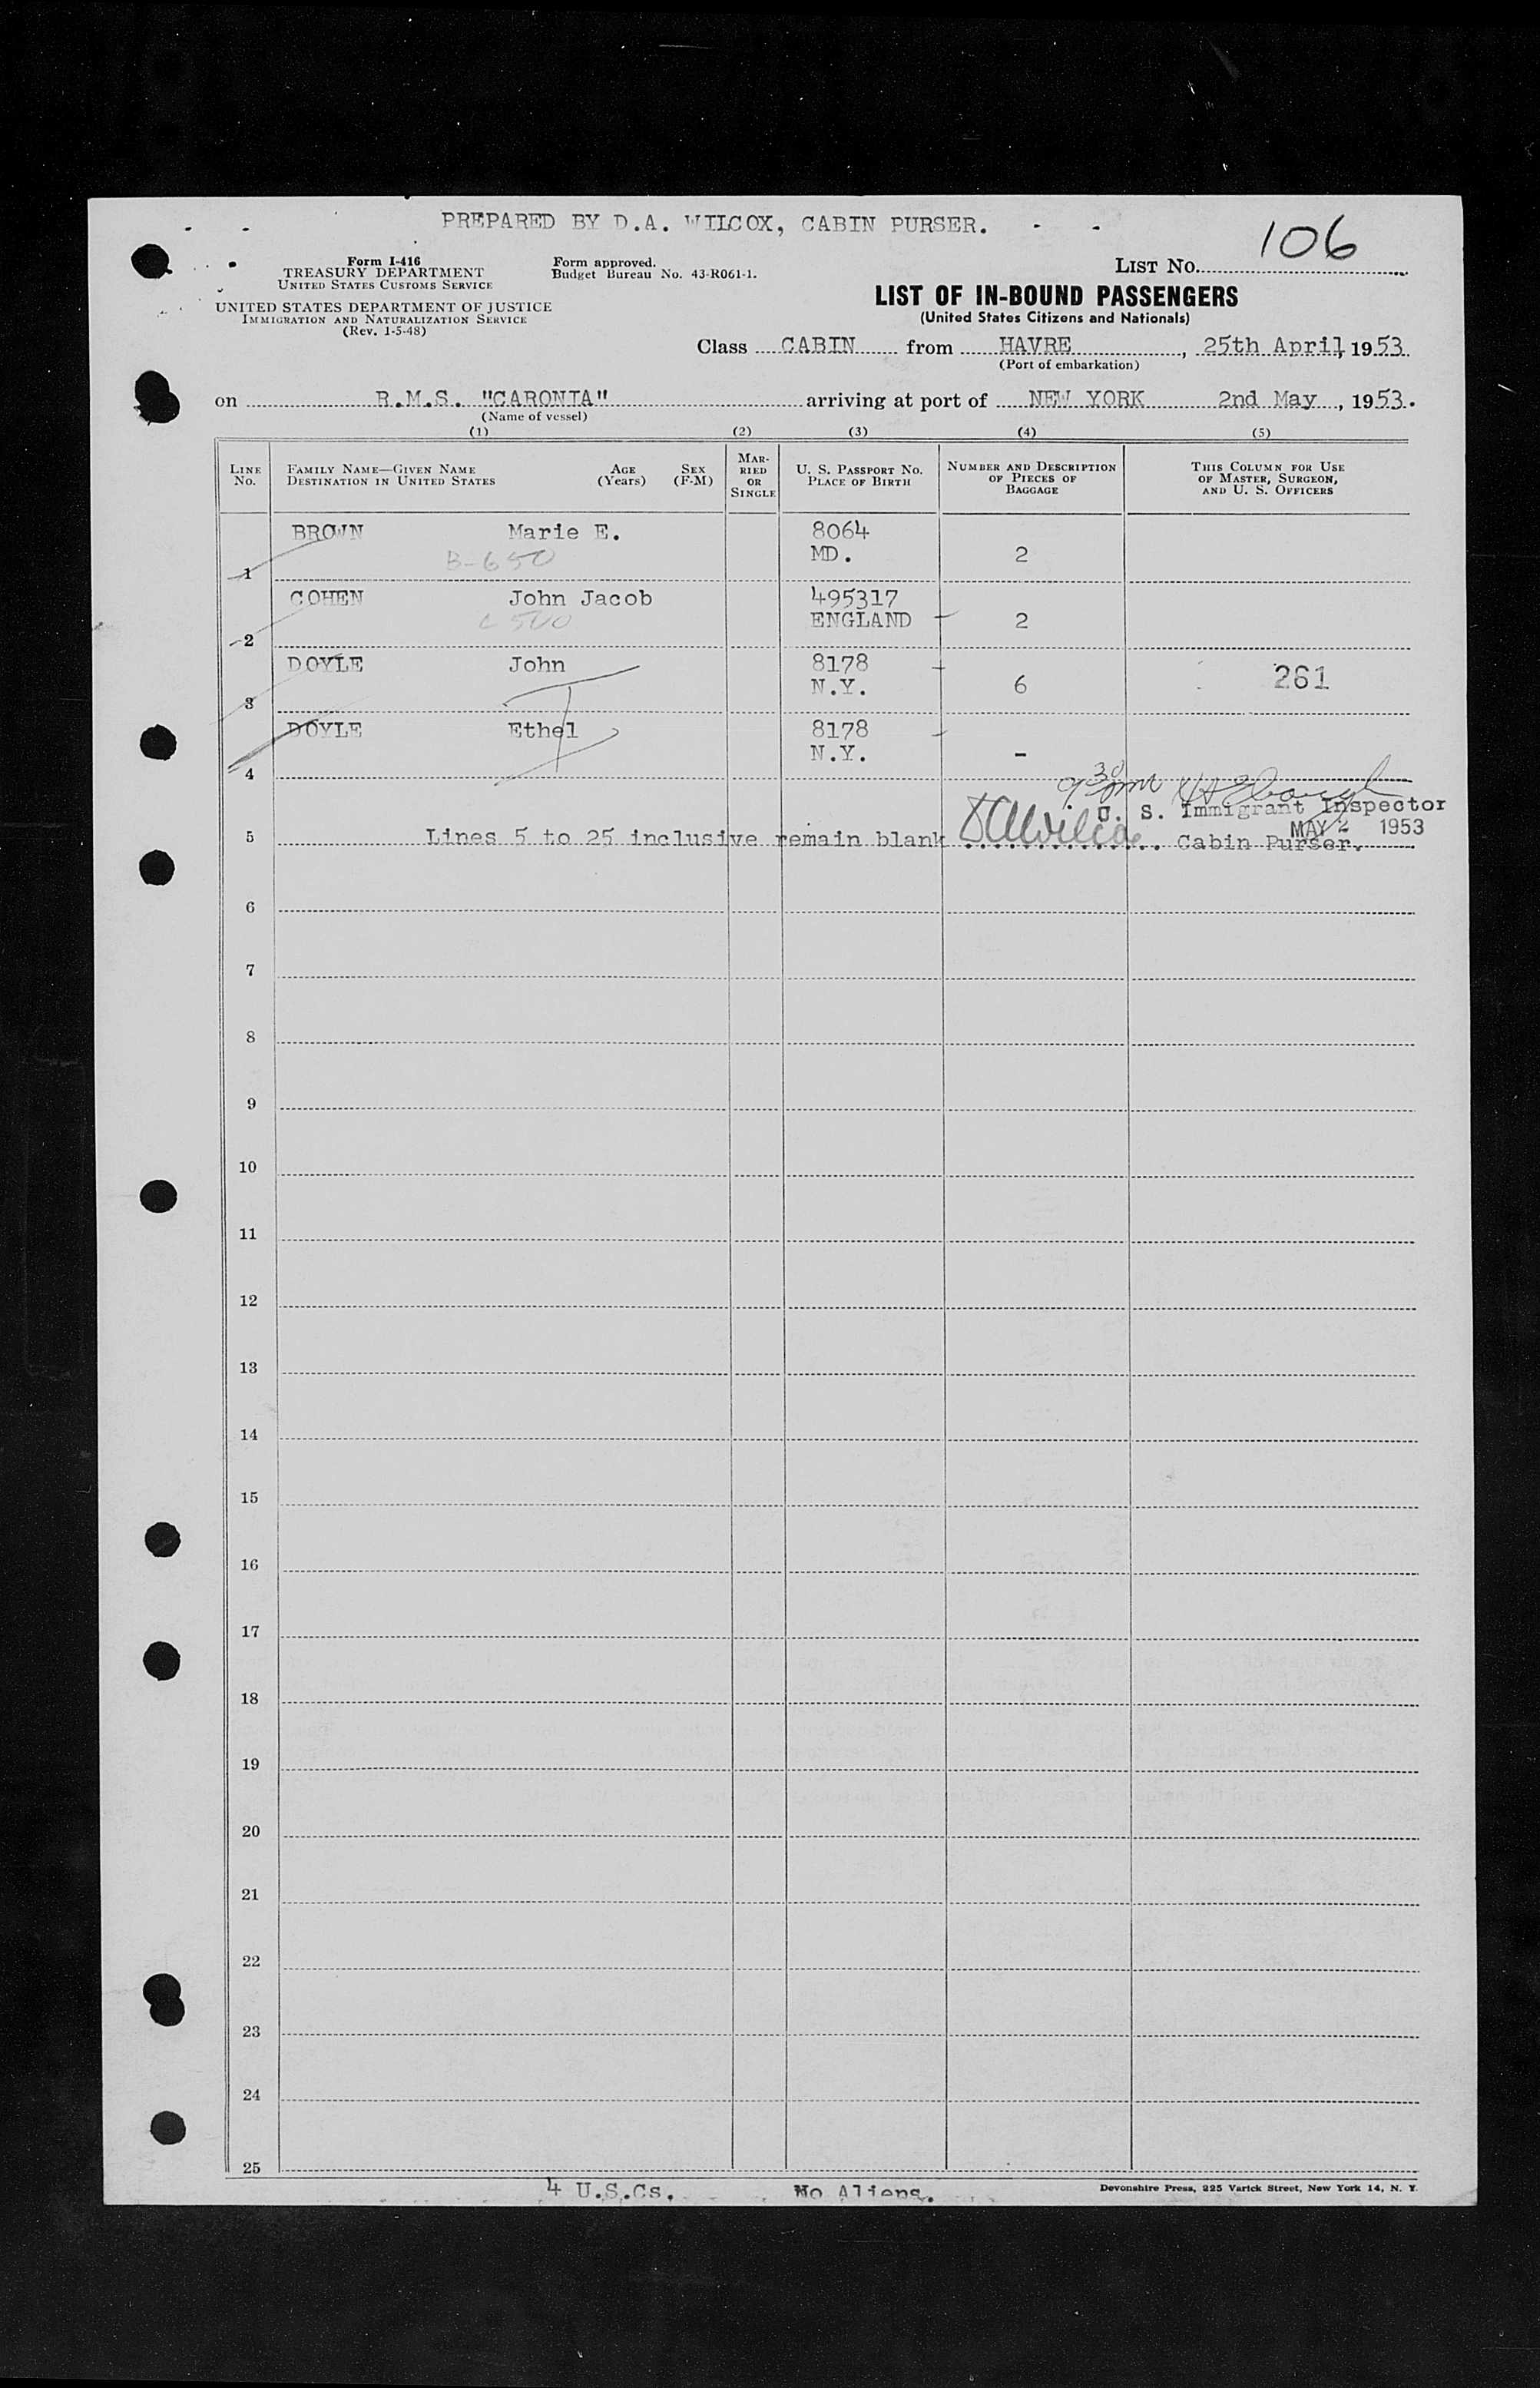 PREPARED BY D.A. WILCOX, CABIN PURSER.
106
Form I-416
TREASURY DEPARTMENT
UNITED STATES CUSTOMS SERVICE
Form approved.
Budget Bureau No. 43-R061-1.
LIST NO.
UNITED STATES DEPARTMENT OF JUSTICE
IMMIGRATION AND NATURALIZATION SERVICE
(Rev. 1-5-48)
LIST OF IN-BOUND PASSENGERS
(United States Citizens and Nationals)
Class CABIN from HAVRE, 25th April, 1953
(Port of embarkation)
on R.M.S. "CARONIA" arriving at port of NEW YORK 2nd May, 1953.
(Name of vessel)
(1) (2) (3) (4) (5)
LINE NO.
FAMILY NAME—GIVEN NAME
DESTINATION IN UNITED STATES
AGE (Years)
SEX (F-M)
MARRIED OR SINGLE
U. S. PASSPORT NO.
PLACE OF BIRTH
NUMBER AND DESCRIPTION OF PIECES OF BAGGAGE
THIS COLUMN FOR USE OF MASTER, SURGEON, AND U. S. OFFICERS
BROWN Marie E. 8064
B-650 MD. 2
1
COHEN John Jacob 495317
C 500 ENGLAND 2
2
DOYLE John 8178
N.Y. 6 261
3
DOYLE Ethel 8178
N.Y. -
4
9 30 pm
U. S. Immigrant Inspector
MAY 2 1953
5 Lines 5 to 25 inclusive remain blank DAWilcox Cabin Purser.
6
7
8
9
10
11
12
13
14
15
16
17
18
19
20
21
22
23
24
25
4 U.S.Cs. No Aliens.
Devonshire Press, 225 Varick Street, New York 14, N. Y.